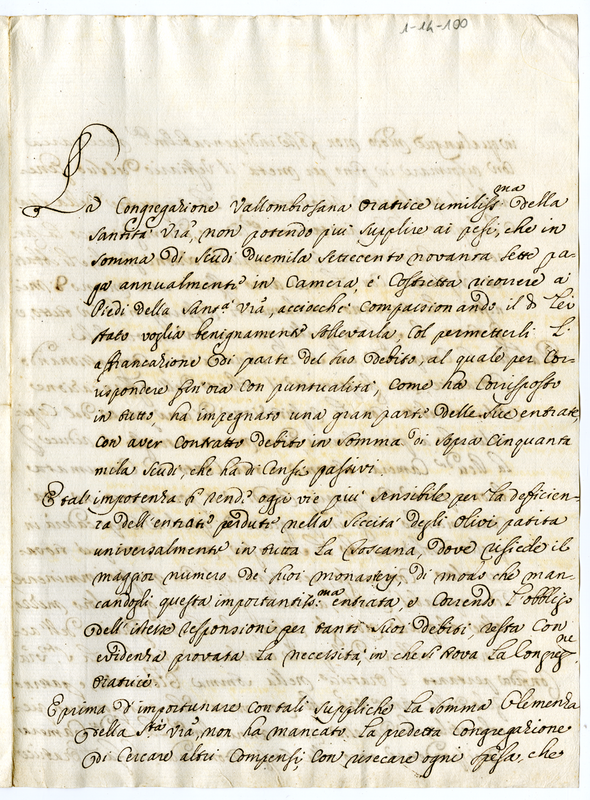 1-14-100
La Congregazione Vallombrosana Oratrice umiliss.ma della
Santità Vra, non potendo più supplire ai pesi, che in
somma di Scudi Duemila Settecento novanta sette pa-
ga annualmente in Camera, è Costretta ricorrere a
Piedi della Sant.à Vra, acciocchè compassionando il di Lei
stato voglia benignamente sollevarla, col permetterli l'
affrancazione di parte del suo Debito, al quale per cor-
rispondere fin'ora con puntualità, come ha corrisposto
in tutto, ha impegnato una gran parte delle sue entrate,
con aver contratto debito in somma di sopra Cinquanta
mila scudi, che ha di Censi passivi
E tale impotenza si rende oggi vie più sensibile per la deficien-
za dell'entrate perdute nella Siccità degli olivi patita
universalmente in tutta la Toscana, dove risiede il
maggior numero de' suoi monasterj, di modo che man-
candogli questa importantiss:ma entrata, e correndo l'obbligo
dell'istesse responsioni per tanti suoi debiti, resta con
evidenza provata la necessità, in che si trova la Congreg.ne
Oratrice.
E prima d'importunare con tali suppliche la somma Clemenza
della S.tà Vra, non ha mancato la predetta Congregazione
di cercare altri compensi, con resecare ogni spesa, che